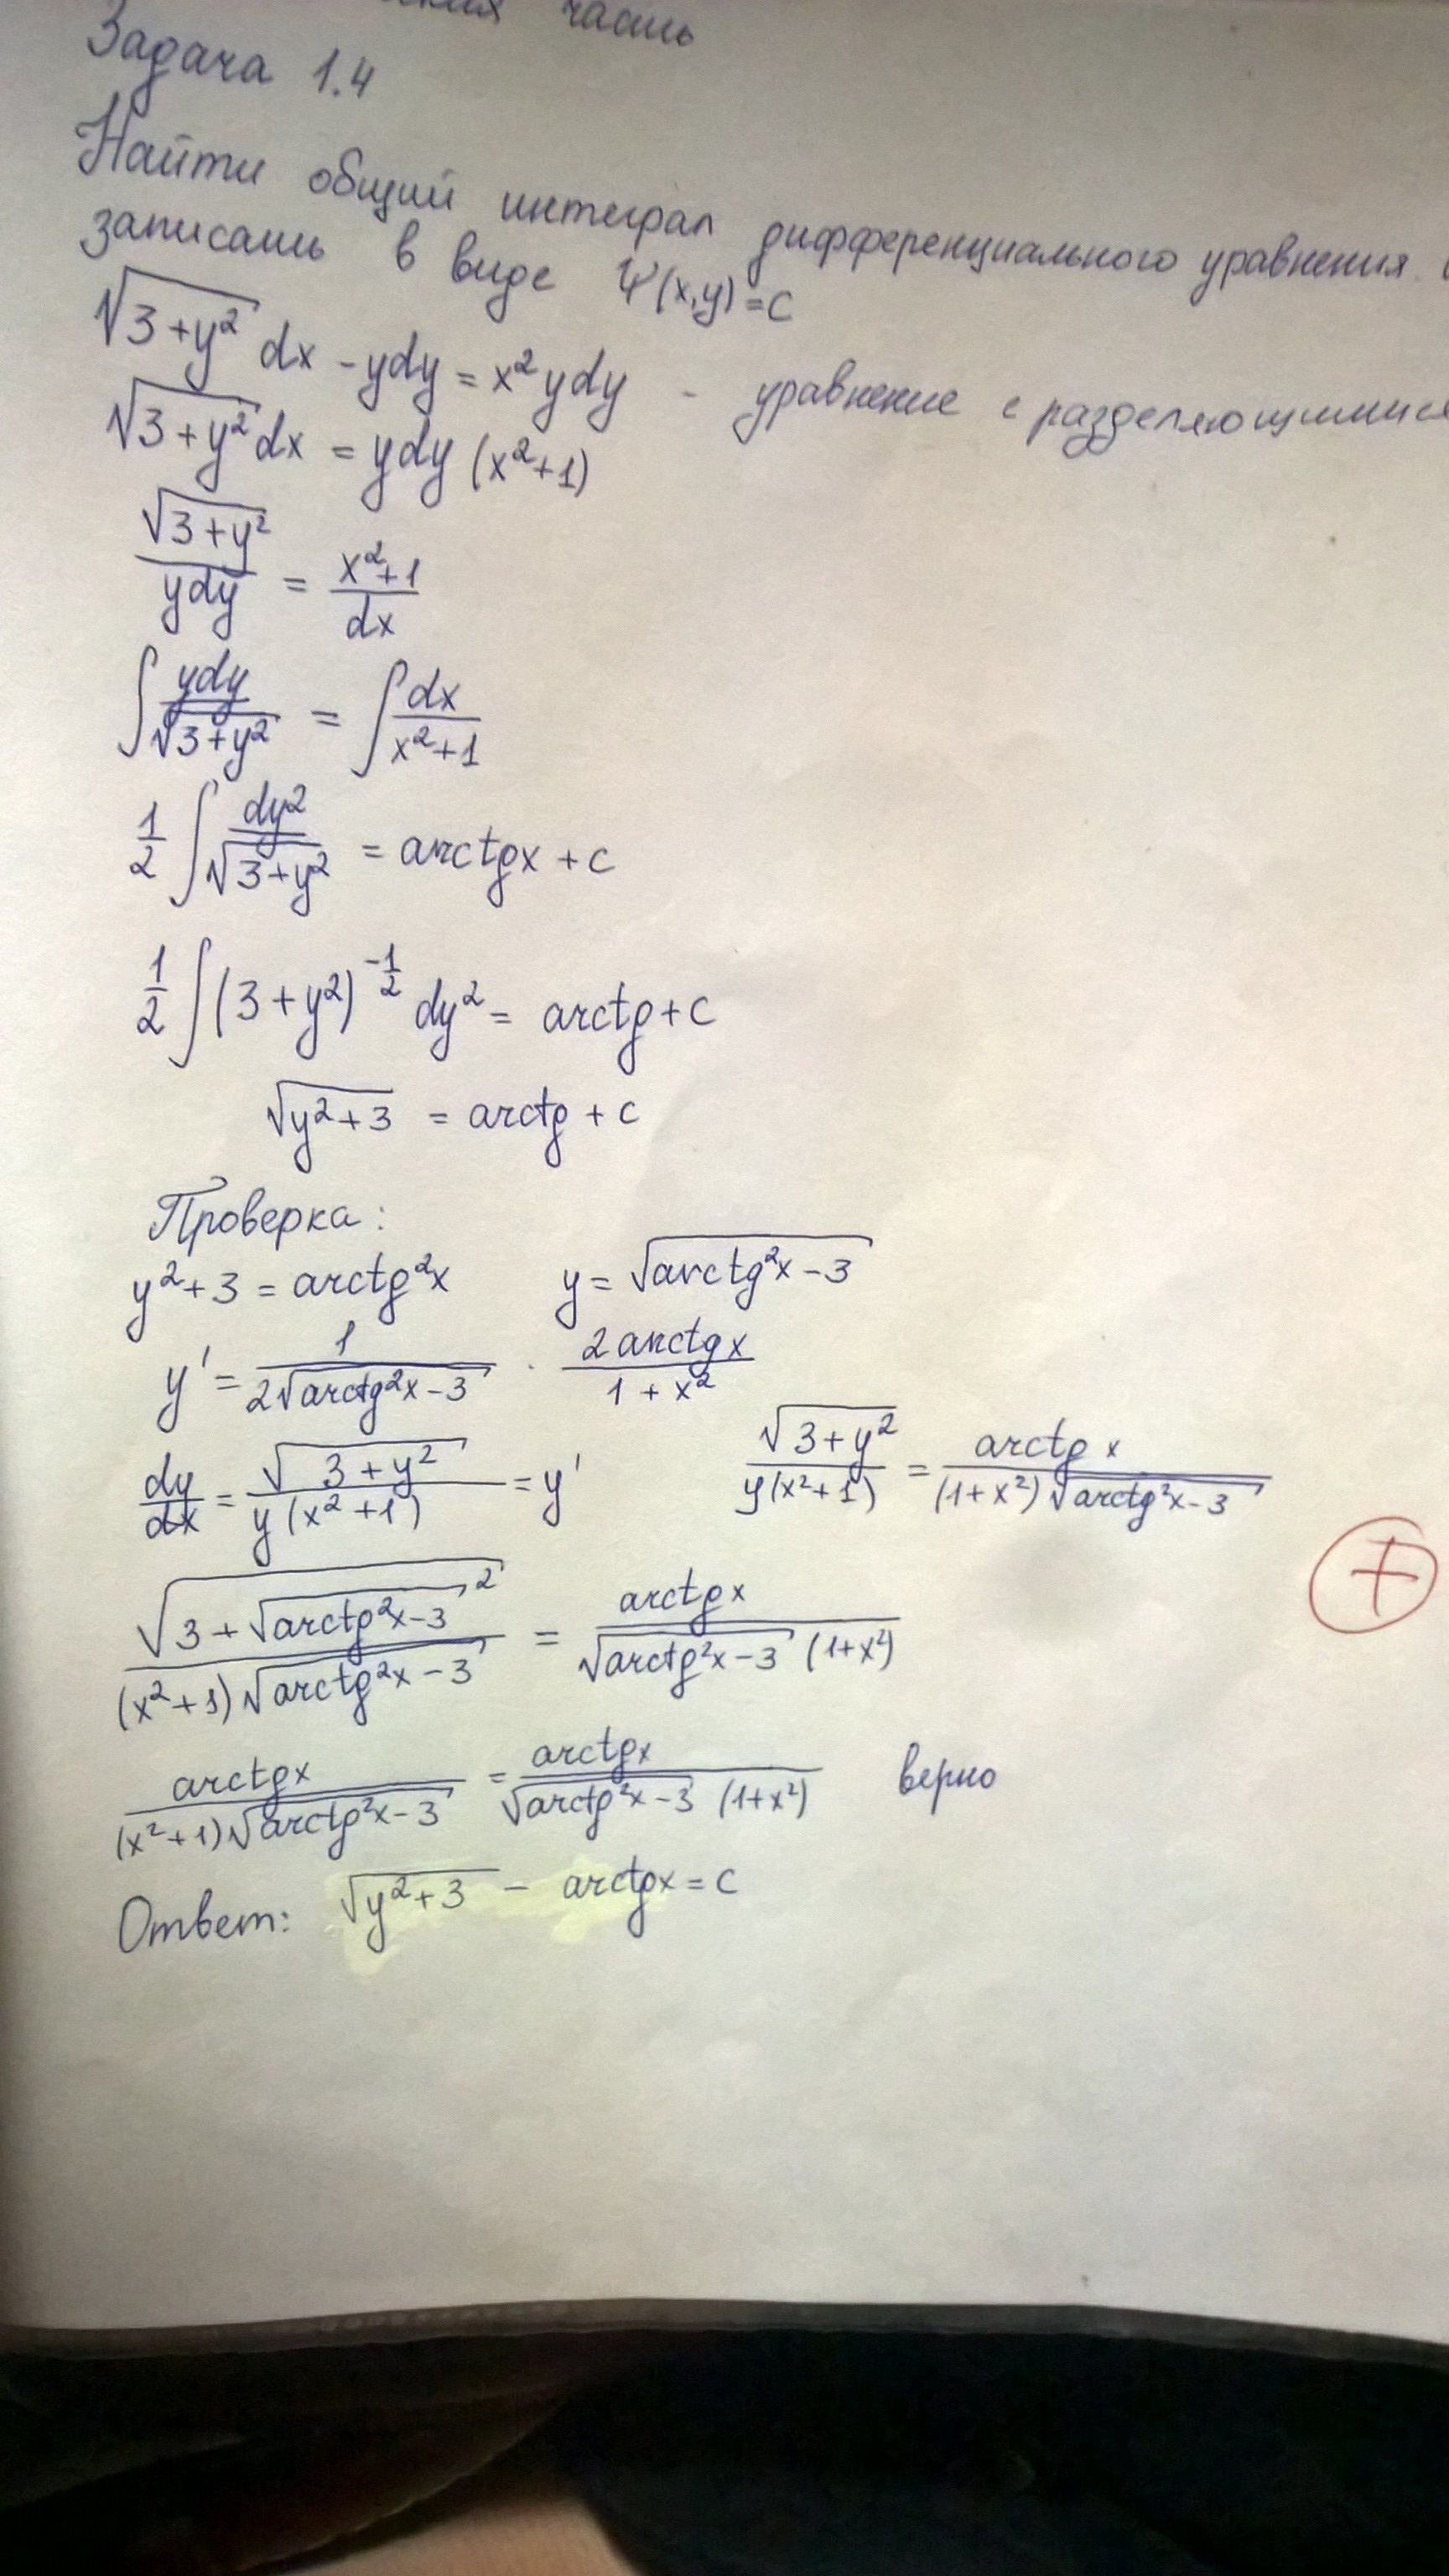 часть
Задача 1.4
Найти общий интеграл дифференциального уравнения.
записать в виде Ψ(x,y)=C
√(3+y²) dx - ydy = x² ydy - уравнение с разделяющимися
√(3+y²) dx = ydy (x²+1)
√(3+y²)/(ydy) = (x²+1)/dx
∫ ydy/√(3+y²) = ∫ dx/(x²+1)
1/2 ∫ dy²/√(3+y²) = arctgx + c
1/2 ∫ (3+y²)^(-1/2) dy² = arctg + c
√(y²+3) = arctg + c
Проверка:
y²+3 = arctg²x y = √(arctg²x-3)
y' = 1/(2√(arctg²x-3)) · 2arctgx/(1+x²)
dy/dx = √(3+y²)/(y(x²+1)) = y' √(3+y²)/(y(x²+1)) = arctgx/((1+x²)√(arctg²x-3))
√(3+√(arctg²x-3)²)/((x²+1)√(arctg²x-3)) = arctgx/(√(arctg²x-3) (1+x²))
+
arctgx/((x²+1)√(arctg²x-3)) = arctgx/(√(arctg²x-3) (1+x²)) верно
Ответ: √(y²+3) - arctgx = c